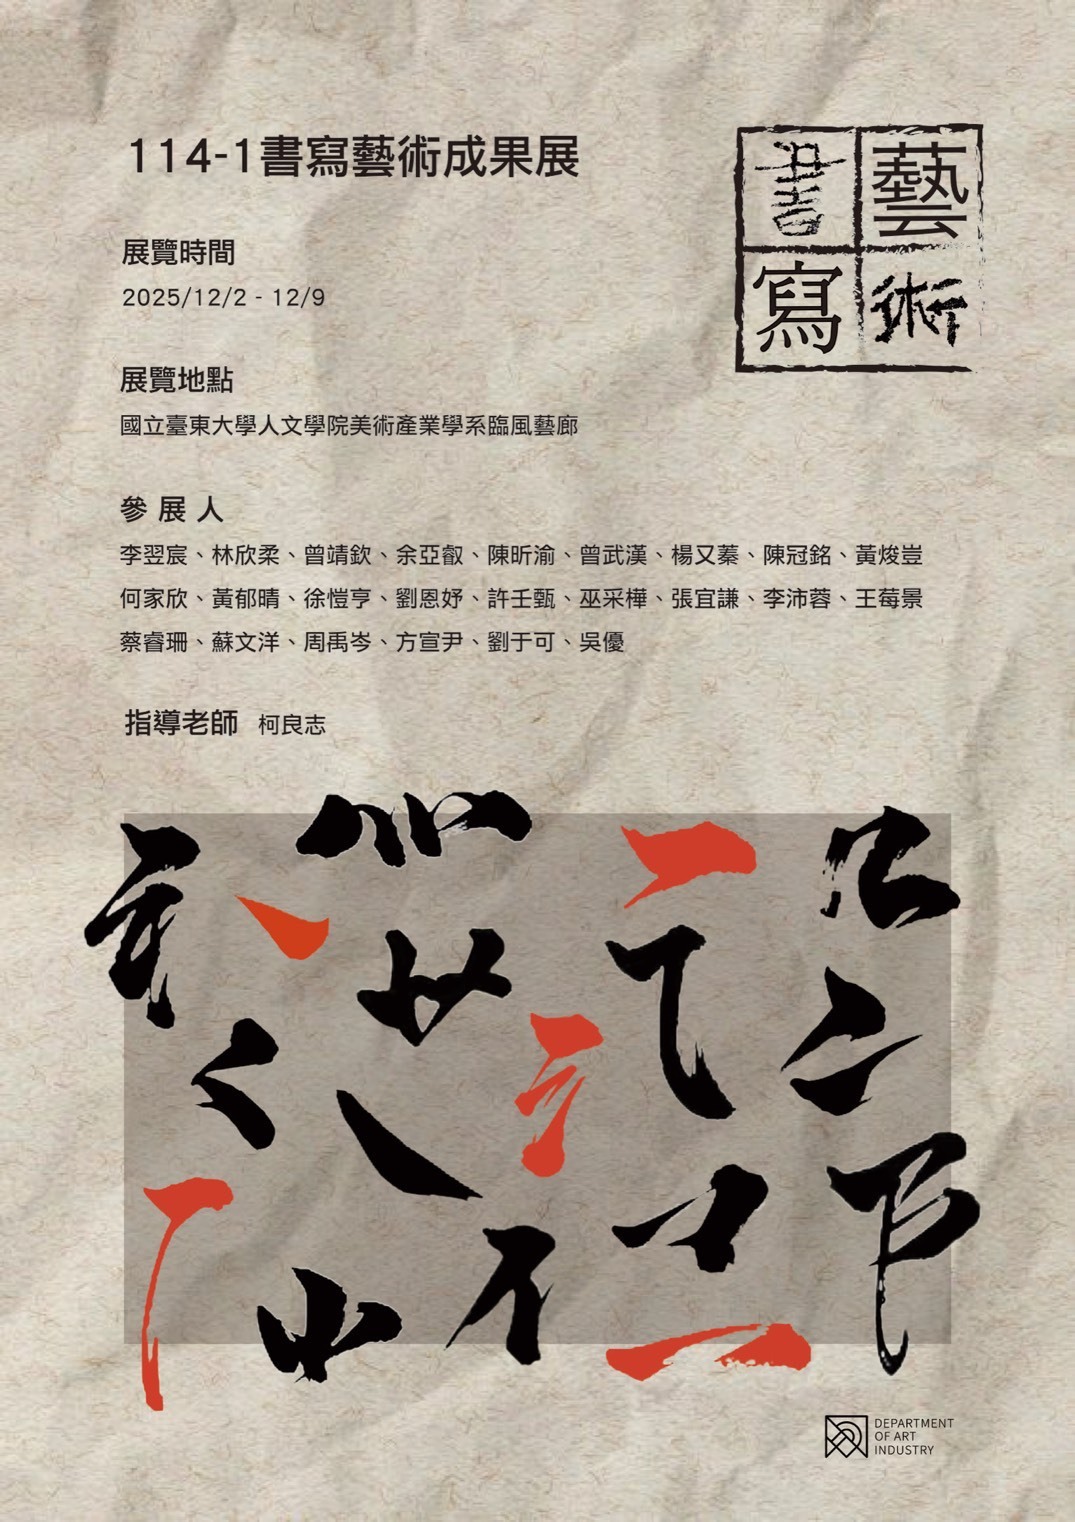 114-1書寫藝術成果展
書藝
寫術
展覽時間
2025/12/2 - 12/9
展覽地點
國立臺東大學人文學院美術產業學系臨風藝廊
參展人
李翌宸、林欣柔、曾靖欽、余亞叡、陳昕渝、曾武漢、楊又蓁、陳冠銘、黃焌豈
何家欣、黃郁晴、徐愷亨、劉恩妤、許壬甄、巫采樺、張宜謙、李沛蓉、王莓景
蔡睿珊、蘇文洋、周禹岑、方宣尹、劉于可、吳優
指導老師 柯良志
DEPARTMENT
OF ART
INDUSTRY